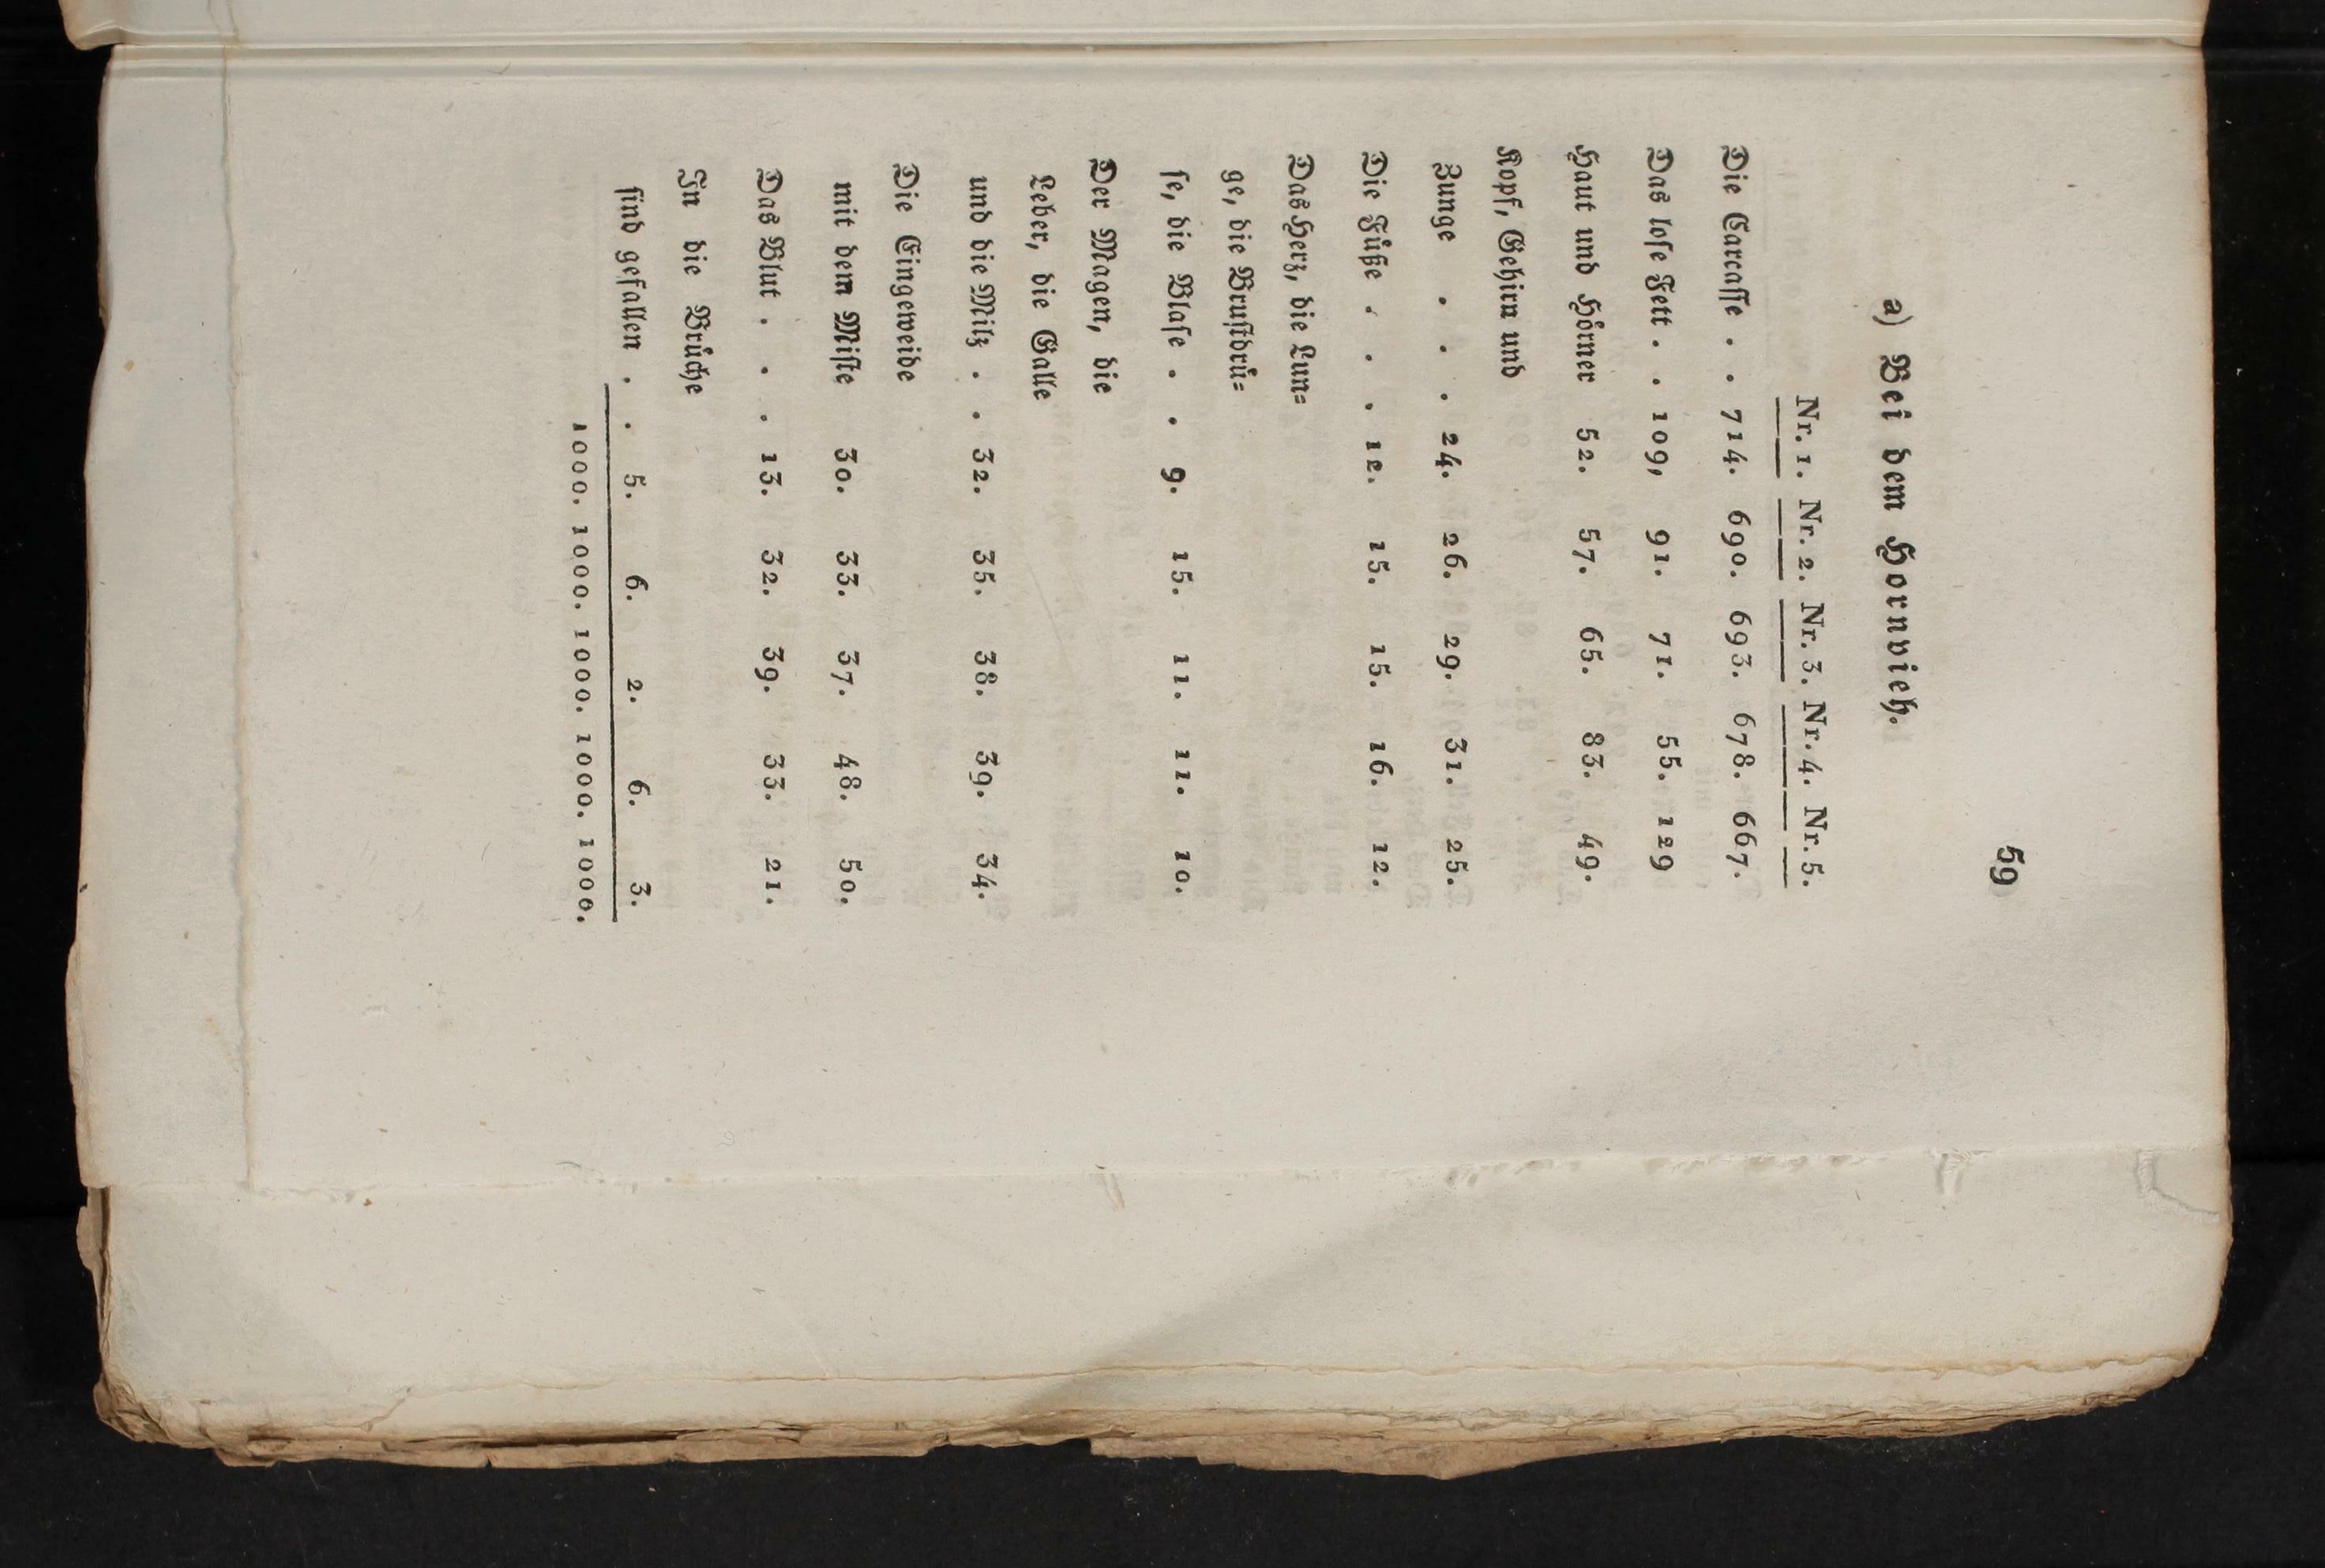 59
a) Bei dem Hornvieh.
Nr. 1. Nr. 2. Nr. 3. Nr. 4. Nr. 5.
Die Carcasse . . 714. 690. 693. 678. 667.
Das lose Fett . . 109, 91. 71. 55. 129
Haut und Hörner 52. 57. 65. 83. 49.
Kopf, Gehirn und
Zunge . . . 24. 26. 29. 31. 25.
Die Füße . . . 12. 15. 15. 16. 12.
Das Herz, die Lun=
ge, die Brustdrü=
se, die Blase . . 9. 15. 11. 11. 10.
Der Magen, die
Leber, die Galle
und die Milz . . 32. 35. 38. 39. 34.
Die Eingeweide
mit dem Miste 30. 33. 37. 48. 50.
Das Blut . . . 13. 32. 39. 33. 21.
In die Brüche
sind gefallen . . 5. 6. 2. 6. 3.
1000. 1000. 1000. 1000. 1000.